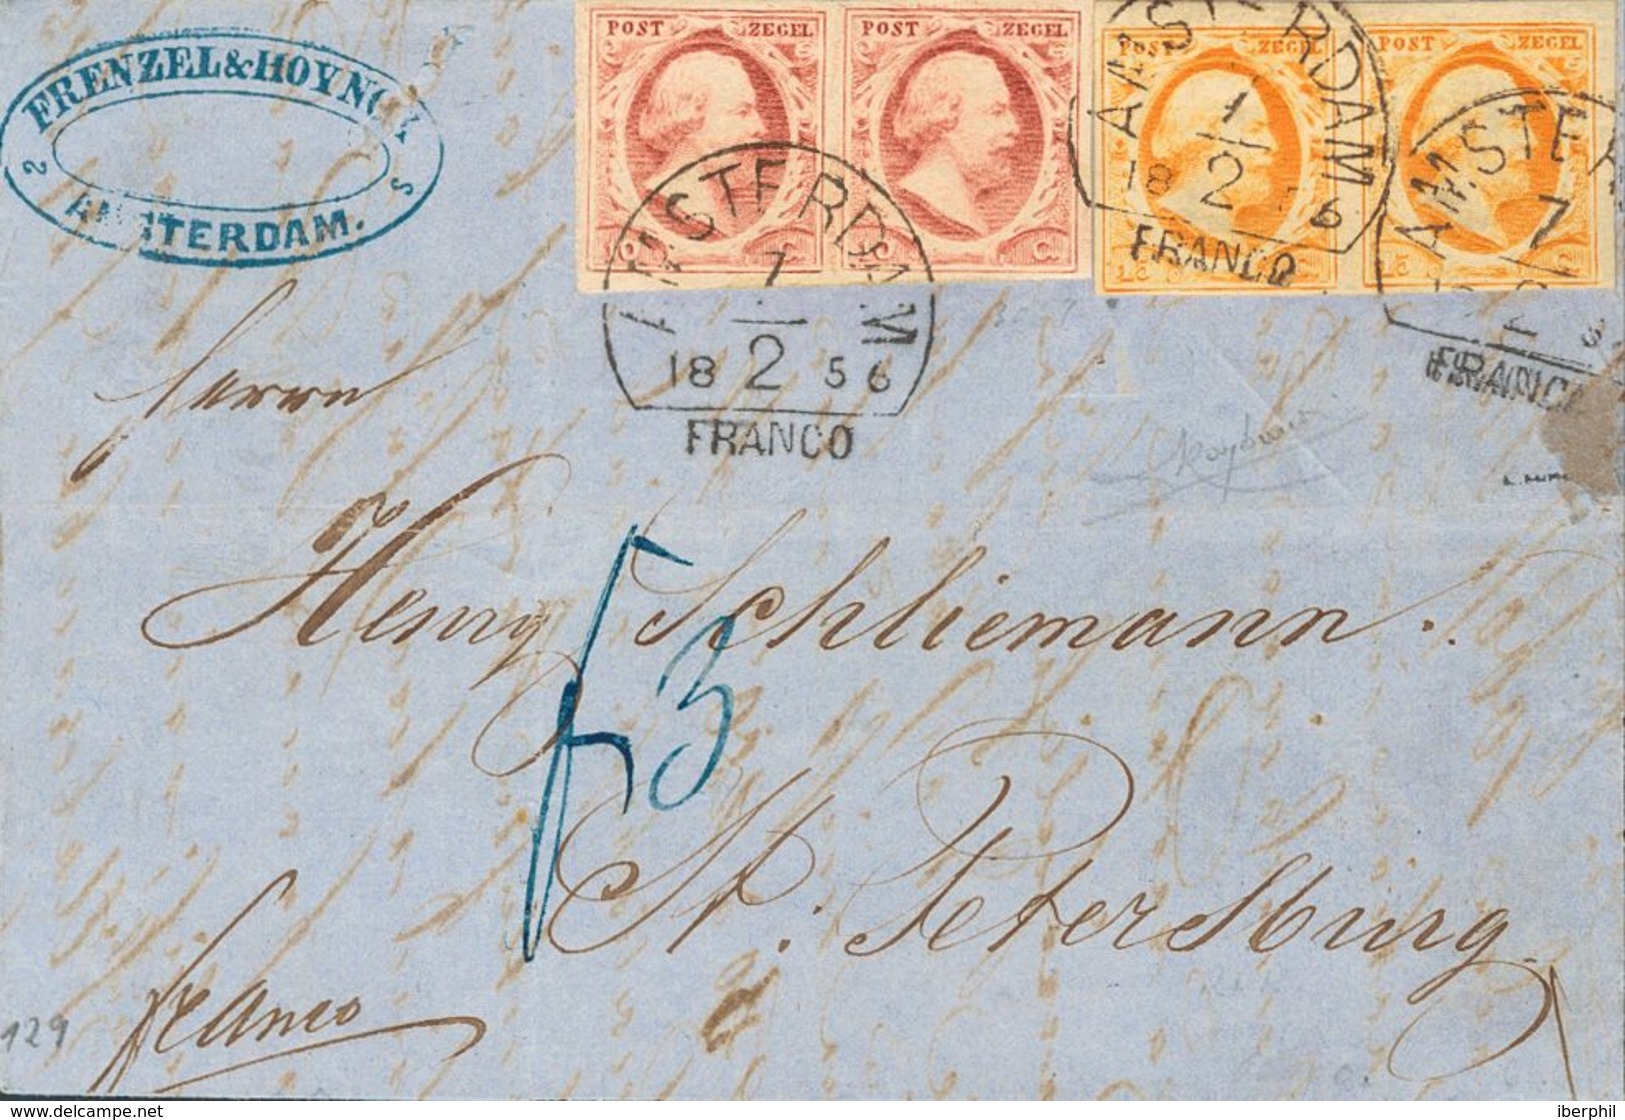 FRENZEL & HOYNCK
AMSTERDAM.
POST ZEGEL
POST ZEGEL
POST ZEGEL
POST ZEGEL
AMSTERDAM
1
18 2 56
FRANCO
AMSTERDAM
1
18 2 6
FRANCO
AMSTER
1
FRANCO
Herrn
Henry Schliemann.
f 3
St. Petersburg
franco
129
iberphil